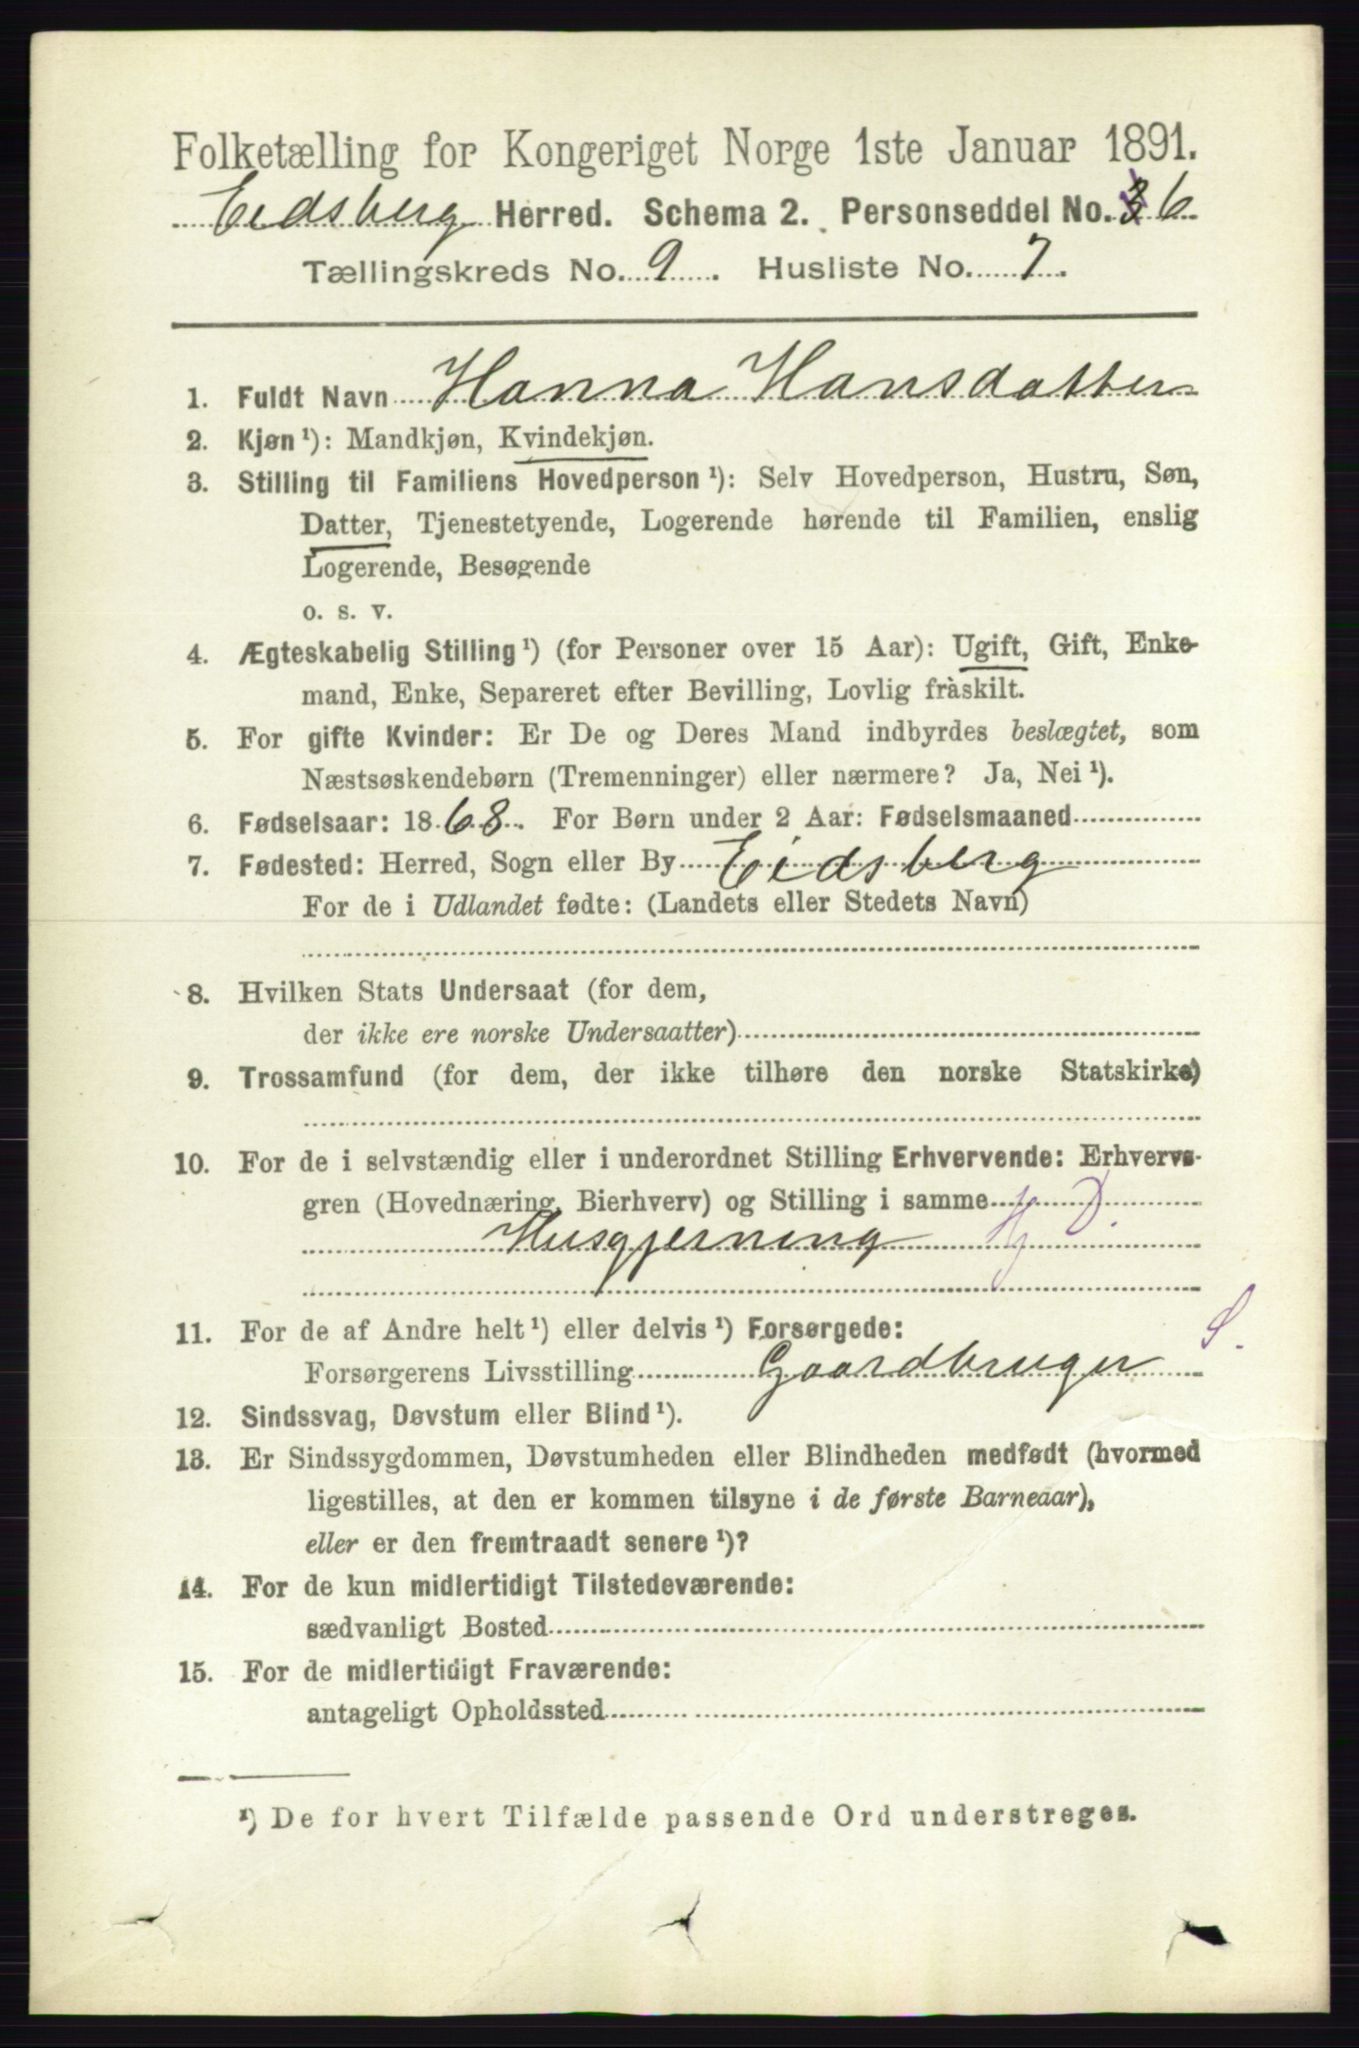 Folketælling for Kongeriget Norge 1ste Januar 1891.
Eidsberg Herred. Schema 2. Personseddel No. 3 6
Tællingskreds No. 9. Husliste No. 7.
1. Fuldt Navn Hanna Hansdatter
2. Kjøn ¹): Mandkjøn, Kvindekjøn.
3. Stilling til Familiens Hovedperson ¹): Selv Hovedperson, Hustru, Søn,
Datter, Tjenestetyende, Logerende hørende til Familien, enslig
Logerende, Besøgende
o. s. v.
4. Ægteskabelig Stilling ¹) (for Personer over 15 Aar): Ugift, Gift, Enke-
mand, Enke, Separeret efter Bevilling, Lovlig fraskilt.
5. For gifte Kvinder: Er De og Deres Mand indbyrdes beslægtet, som
Næstsøskendebørn (Tremenninger) eller nærmere? Ja, Nei ¹).
6. Fødselsaar: 1868. For Børn under 2 Aar: Fødselsmaaned
7. Fødested: Herred, Sogn eller By Eidsberg
For de i Udlandet fødte: (Landets eller Stedets Navn)
8. Hvilken Stats Undersaat (for dem,
der ikke ere norske Undersaatter)
9. Trossamfund (for dem, der ikke tilhøre den norske Statskirke)
10. For de i selvstændig eller i underordnet Stilling Erhvervende: Erhvervs-
gren (Hovednæring, Bierhverv) og Stilling i samme
Husgjerning Hj D.
11. For de af Andre helt ¹) eller delvis ¹) Forsørgede: S.
Forsørgerens Livsstilling Gaardbruger
12. Sindssvag, Døvstum eller Blind ¹).
13. Er Sindssygdommen, Døvstumheden eller Blindheden medfødt (hvormed
ligestilles, at den er kommen tilsyne i de første Barneaar),
eller er den fremtraadt senere ¹)?
14. For de kun midlertidigt Tilstedeværende:
sædvanligt Bosted
15. For de midlertidigt Fraværende:
antageligt Opholdssted
¹) De for hvert Tilfælde passende Ord understreges.